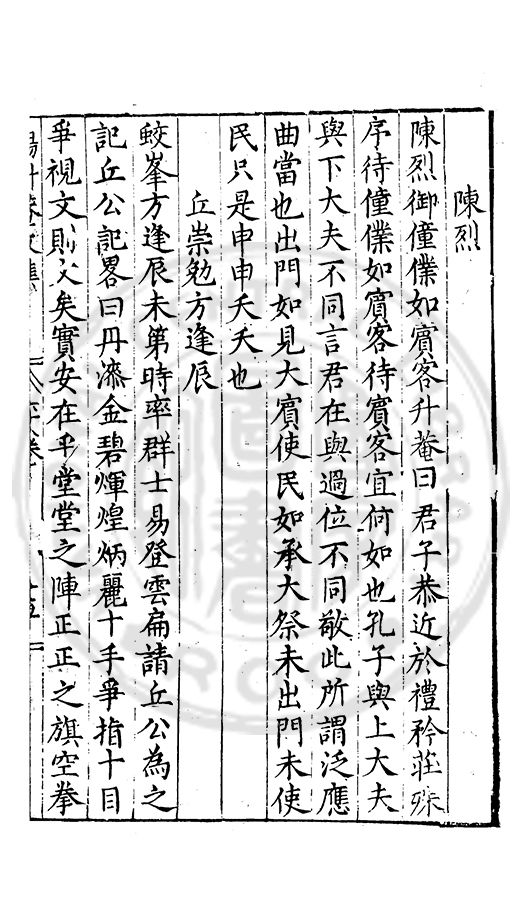 陳烈
陳烈御僮僕如賓客升菴曰君子恭近於禮矜莊殊
序待僮僕如賓客待賓客宜何如也孔子與上大夫
與下大夫不同言君在與過位不同敬此所謂泛應
曲當也出門如見大賓使民如承大祭未出門未使
民只是申申夭夭也
丘崇勉方逢辰
鮫峯方逢辰未第時率群士易登雲扁請丘公為之
記丘公記畧曰丹漆金碧煇煌炳麗十手爭指十目
爭視文則文矣實安在乎堂堂之陣正正之旗空拳